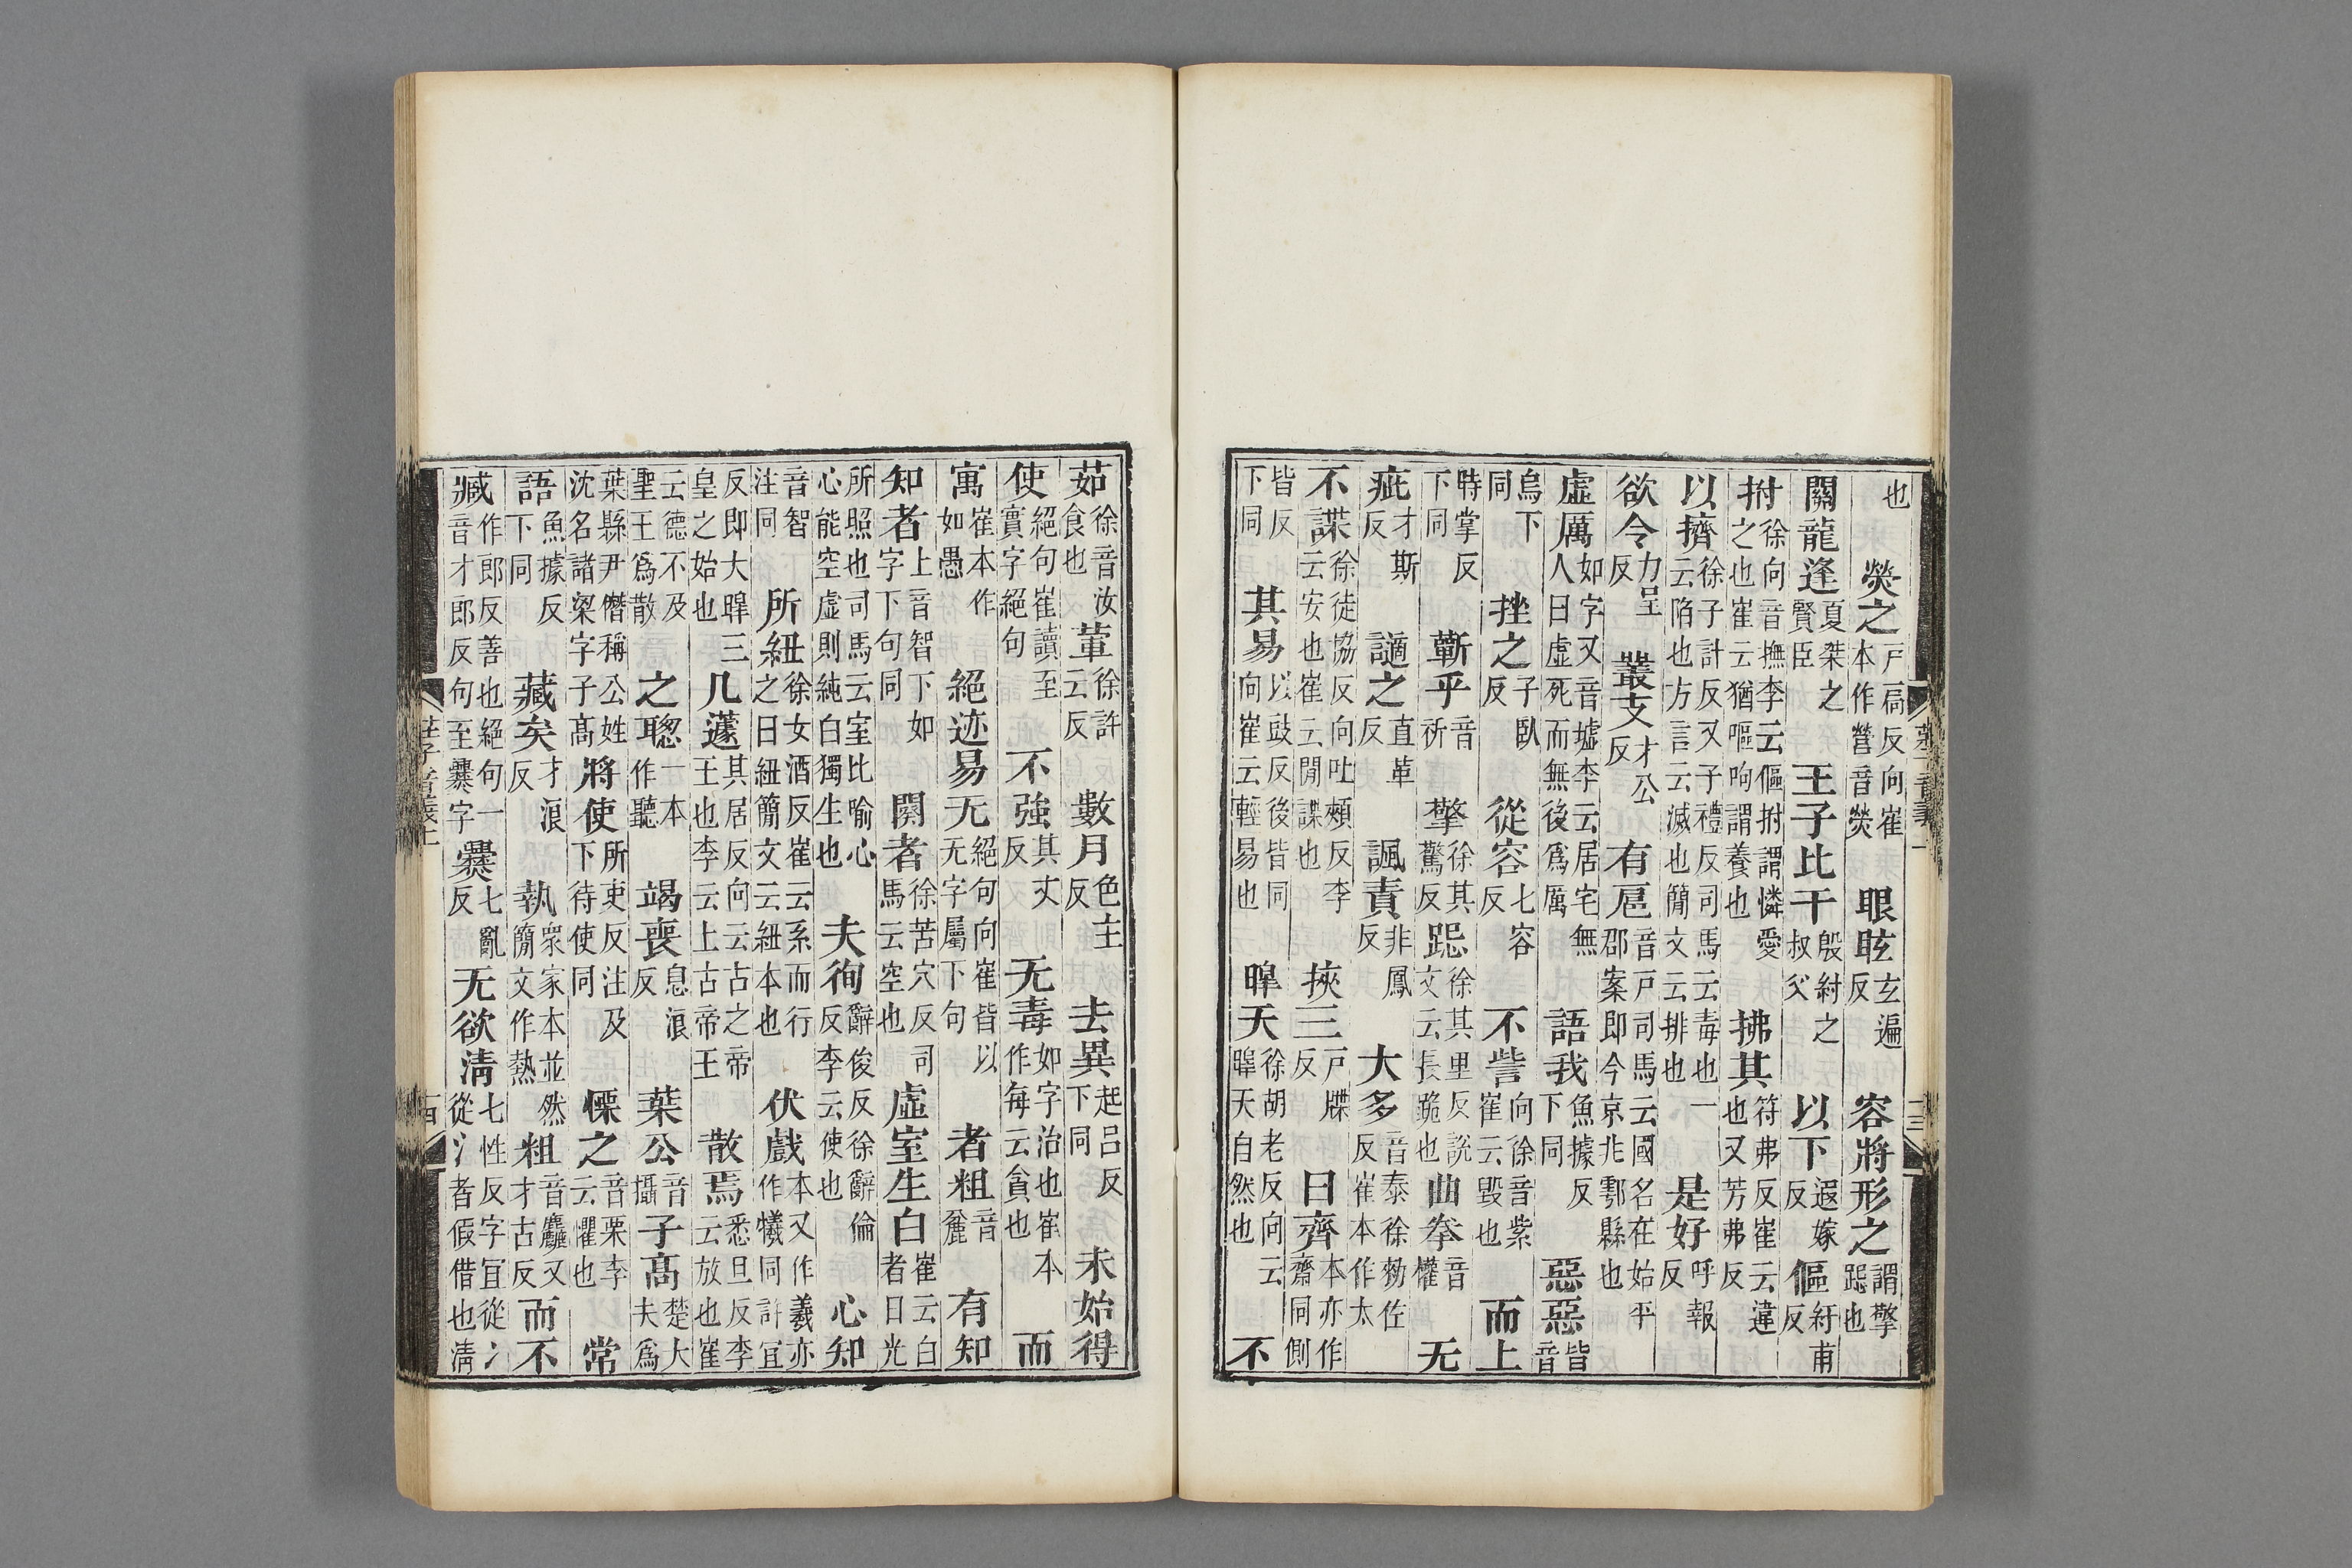 也 熒之戸扃反向崔本作營音熒 眼眩玄遍反 容將形之謂擎跽也
關龍逄夏桀之賢臣 王子比干殷紂之叔父 以下遐嫁反 傴紆甫反
拊徐向音撫李云傴拊謂憐愛之也崔云猶嘔呴謂養也 拂其符弗反崔云違也又芳弗反
以擠徐子計反又子禮反司馬云毒也一云陷也方言云滅也簡文云排也 是好呼報反
欲令力呈反 叢支才公反 有扈音戸司馬云國名在始平郡案即今京兆鄠縣也
虛厲如字又音墟李云居宅無人曰虛死而無後爲厲 語我魚據反下同 惡惡皆音
烏下同 挫之子臥反 從容七容反 不訾向徐音紫崔云毀也 而上
時掌反下同 蘄乎音祈 擎徐其驚反 跽徐其里反說文云長跪也 曲拳音權 无
疵才斯反 讁之直革反 諷責非鳳反 大多音泰徐勑佐反崔本作太
不諜徐徒協反向吐頰反李云安也崔云閒諜也 挾三戸牒反 曰齊本亦作齋同側
皆反下同 其易以豉反後皆同向崔云輕易也 暤天徐胡老反向云暤天白然也 不
茹徐音汝食也 葷徐許云反 數月色主反 去異起呂反下同 未始得
使絕句崔讀至實字絕句 不強其丈反 无毒如字治也崔本作每云貪也 而
寓崔本作如愚 絕迹易无絕句向崔皆以无字屬下句 者粗音麄 有知
知者上音智下如字下句同 闋者徐苦穴反司馬云空也 虛室生白崔云白者日光
所照也司馬云室比喻心心能空虛則純白獨生也 夫徇辭俊反徐辭倫反李云使也 心知
音智注同 所紐徐女酒反崔云系而行之曰紐簡文云紐本也 伏戲本又作羲亦作犧同許宜
反即大暤三皇之始也 几蘧其居反向云古之帝王也李云上古帝王 散焉悉旦反李云放也崔
云德不及聖王爲散 之聰一本作聽 竭喪息浪反 葉公音攝 子高楚大夫爲
葉縣尹僭稱公姓沈名諸梁字子高 將使所吏反注及下待使同 慄之音栗李云懼也 常
語魚據反下同 藏矣才浪反 執眾家本並然簡文作熱 粗音麤又才古反 而不
臧作郎反善也絕句一音才郎反句至爨字 爨七亂反 无欲清七性反字宜從冫從氵者假借也清
莊子音義上 十四